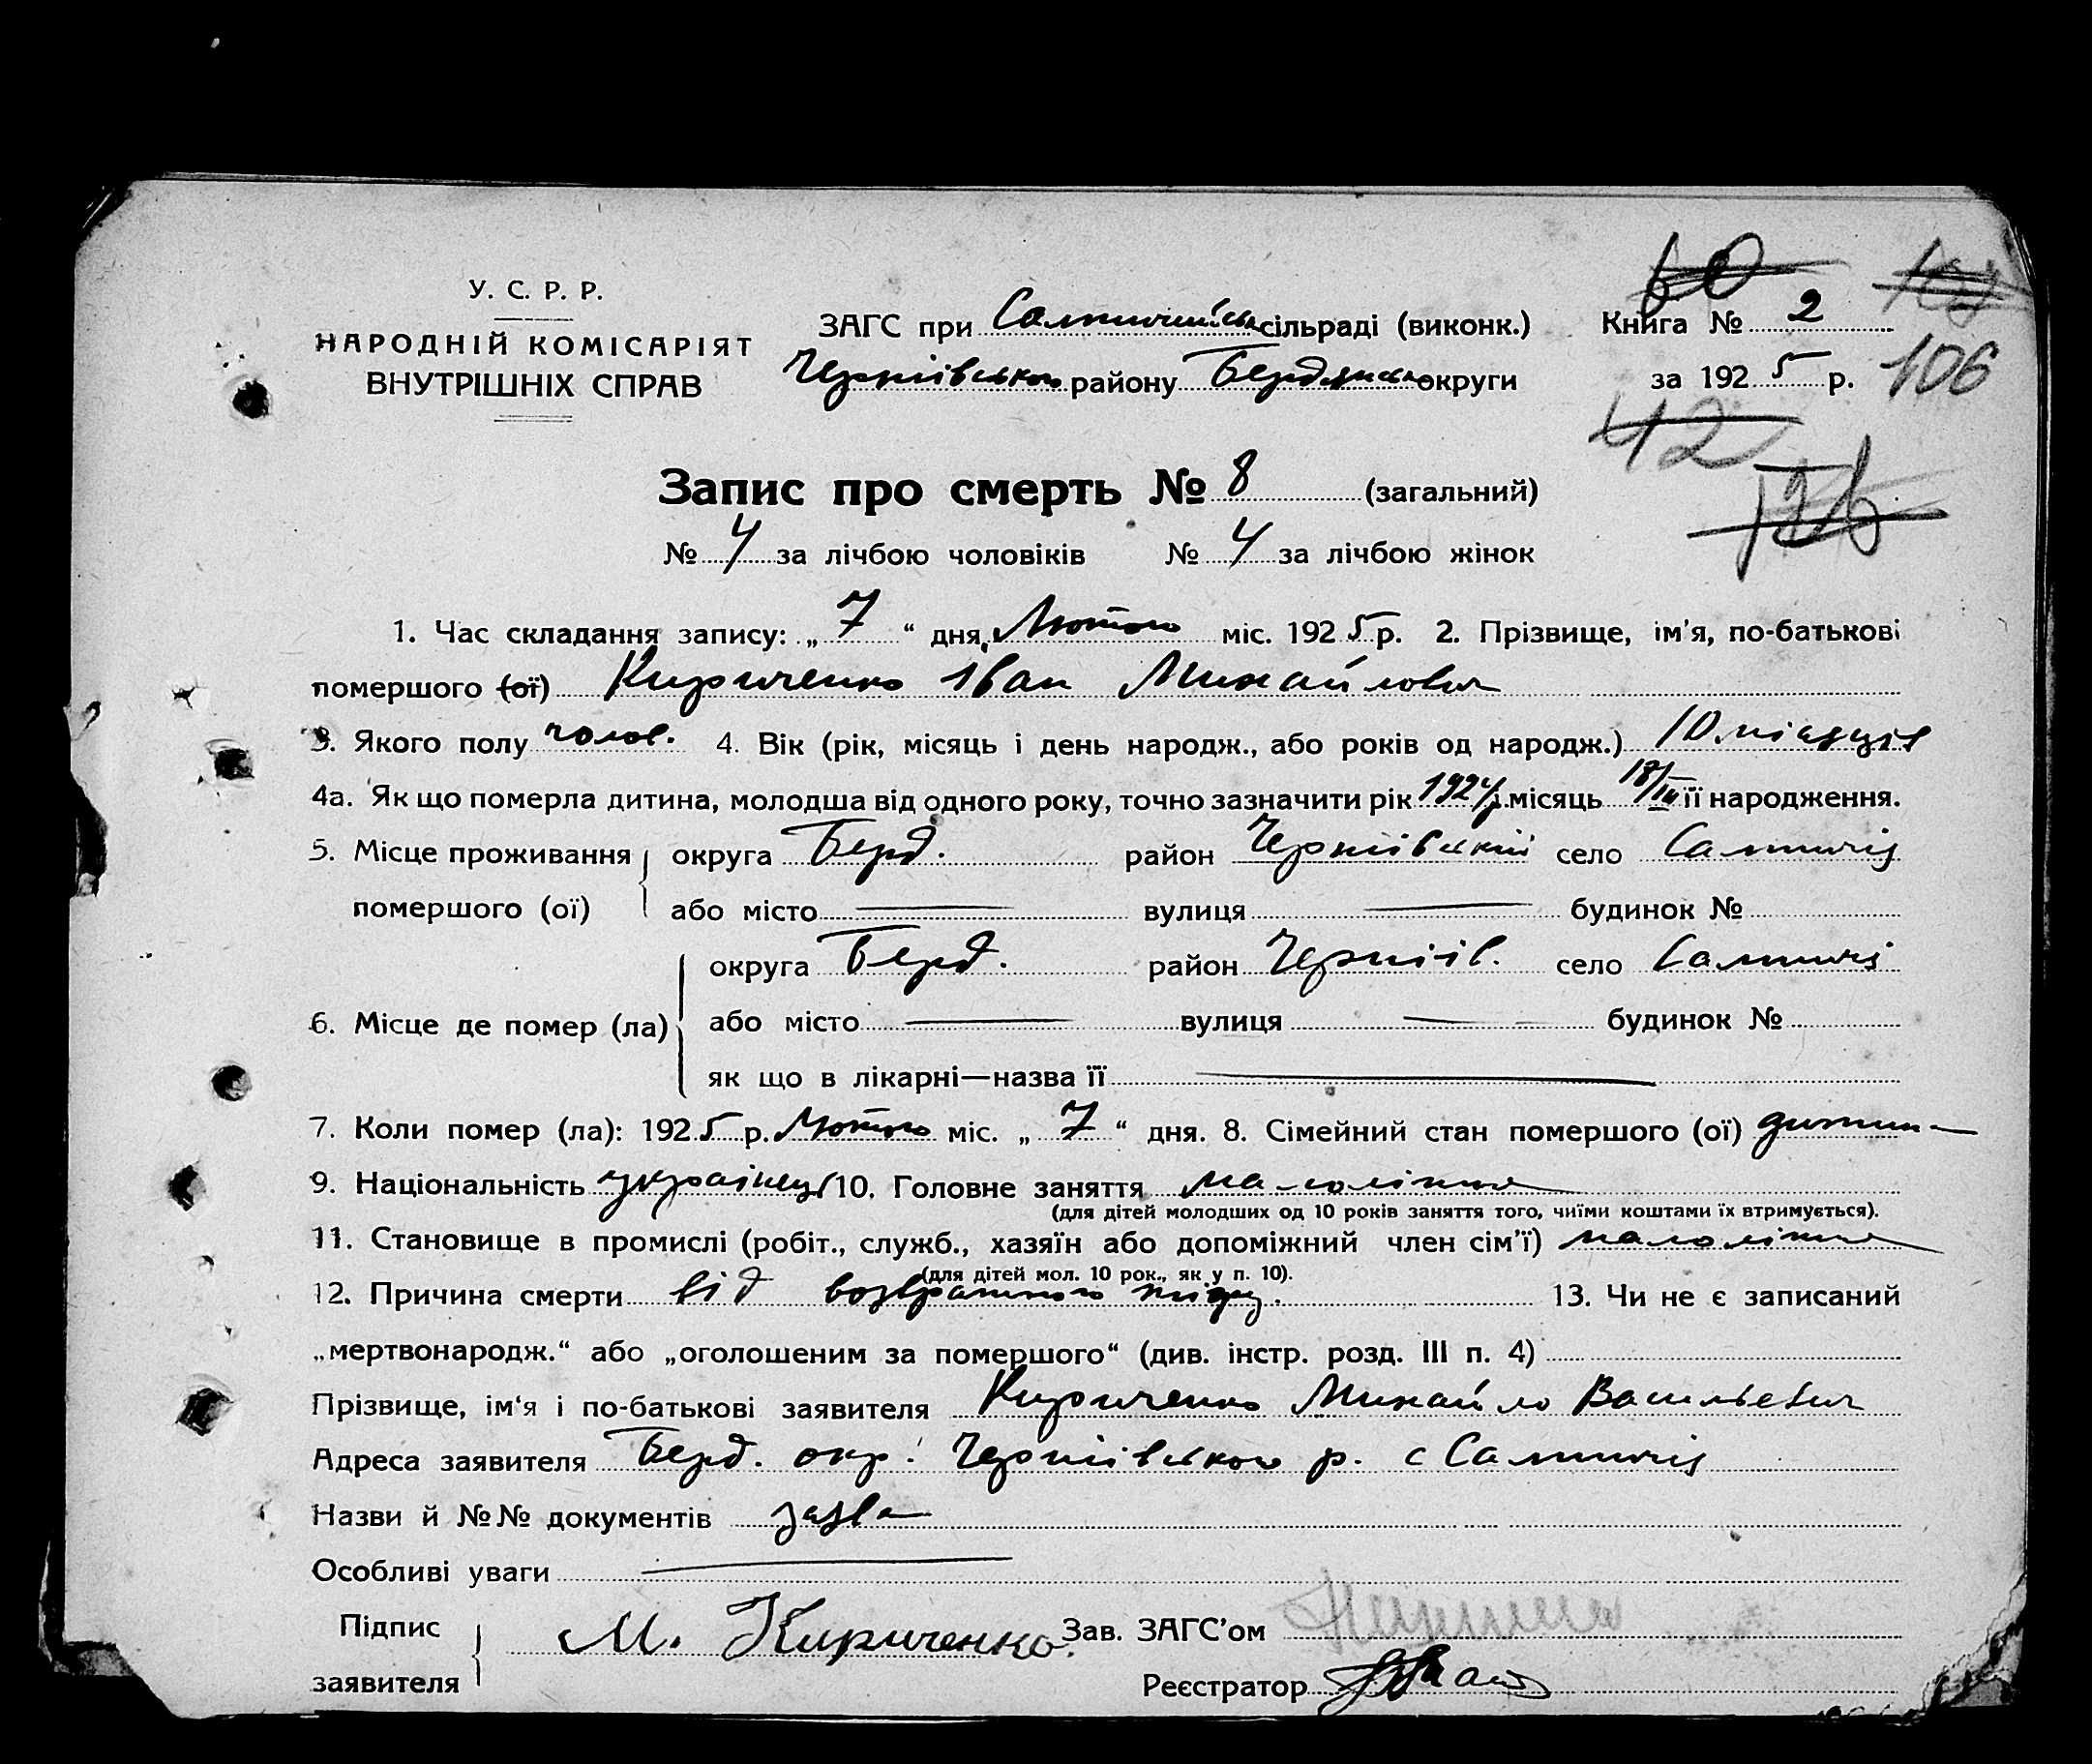 У. С. Р. Р.
НАРОДНІЙ КОМІСАРІЯТ
ВНУТРІШНІХ СПРАВ
ЗАГС при Салтичийськ сільраді (виконк.)
Черніївського району Бердянсько округи
60
Книга № 2
за 1925 р.
106
42
126
Запис про смерть № 8 (загальний)
№ 4 за лічбою чоловіків № 4 за лічбою жінок
1. Час складання запису: „ 7 “ дня Лютого міс. 1925 р. 2. Прізвище, ім'я, по-батькові
помершого (ої) Кириченко Іван Михайлович
3. Якого полу чолов. 4. Вік (рік, місяць і день народж., або років од народж.) 10 місяців
4а. Як що померла дитина, молодша від одного року, точно зазначити рік 1924 р. місяць 18/ІІІ її народження.
5. Місце проживання помершого (ої) округа Берд. район Черніівский село Салтичія
або місто вулиця будинок №
6. Місце де помер (ла) округа Берд. район Черніів. село Салтичія
або місто вулиця будинок №
як що в лікарні—назва її
7. Коли помер (ла): 1925 р. Лютого міс. „ 7 “ дня. 8. Сімейний стан помершого (ої) дитина
9. Національність українец 10. Головне заняття малолітне
(для дітей молодших од 10 років заняття того, чиїми коштами їх втримується).
11. Становище в промислі (робіт., служб., хазяїн або допоміжний член сім'ї) малолітне
(для дітей мол. 10 рок., як у п. 10).
12. Причина смерти від возвратного тифу. 13. Чи не є записаний
„мертвонародж.“ або „оголошеним за помершого“ (див. інстр. розд. III п. 4)
Прізвище, ім'я і по-батькові заявителя Кириченко Михайло Васильевич
Адреса заявителя Берд. окр. Черніівського р. с Салтичія
Назви й №№ документів заява
Особливі уваги
Підпис заявителя М. Кириченко.
Зав. ЗАГС'ом
Реєстратор